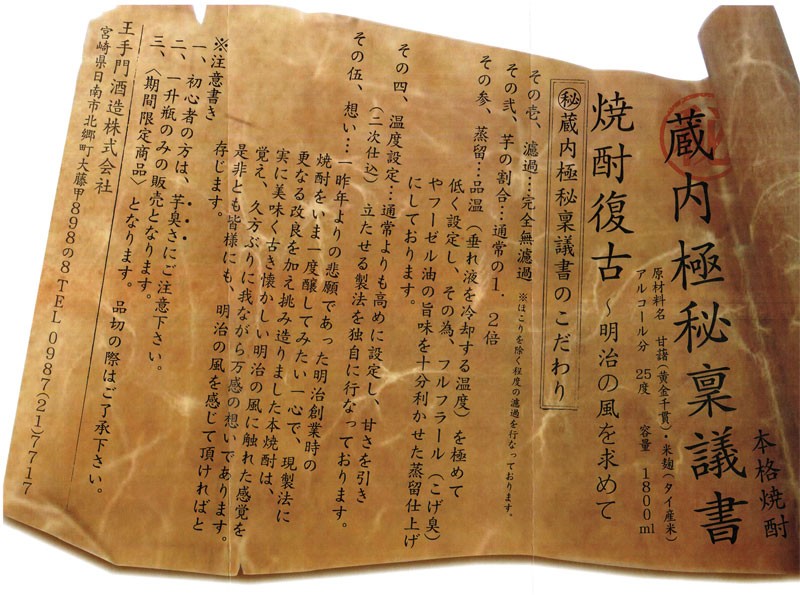 本格焼酎
蔵内極秘稟議書
原材料名 甘藷(黄金千貫)・米麹(タイ産米)
アルコール分 25度 容量 1800ml
焼酎復古 ~明治の風を求めて
㊙蔵内極秘稟議書のこだわり
その壱、濾過…完全無濾過 ※ほこりを除く程度の濾過を行なっております。
その弐、芋の割合…通常の1.2倍
その参、蒸留…品温(垂れ液を冷却する温度)を極めて
低く設定し、その為、フルフラール(こげ臭)
やフーゼル油の旨味を十分利かせた蒸留仕上げ
にしております。
その四、温度設定…通常よりも高めに設定し、甘さを引き
(二次仕込) 立たせる製法を独自に行なっております。
その伍、想い…一昨年よりの悲願であった明治創業時の
焼酎をいま一度醸してみたい一心で、現製法に
更なる改良を加え挑み造りました本焼酎は、
実に美味く古き懐かしい明治の風に触れた感覚を
覚え、久方ぶりに我ながら万感の想いであります。
是非とも皆様にも、明治の風を感じて頂ければと
存じます。
※注意書き
一、初心者の方は、芋臭さにご注意下さい。
二、一升瓶のみの販売となります。
三、〈期間限定商品〉となります。品切の際はご了承下さい。
王手門酒造株式会社
宮崎県日南市北郷町大藤甲898の8 TEL 0987(21)7717